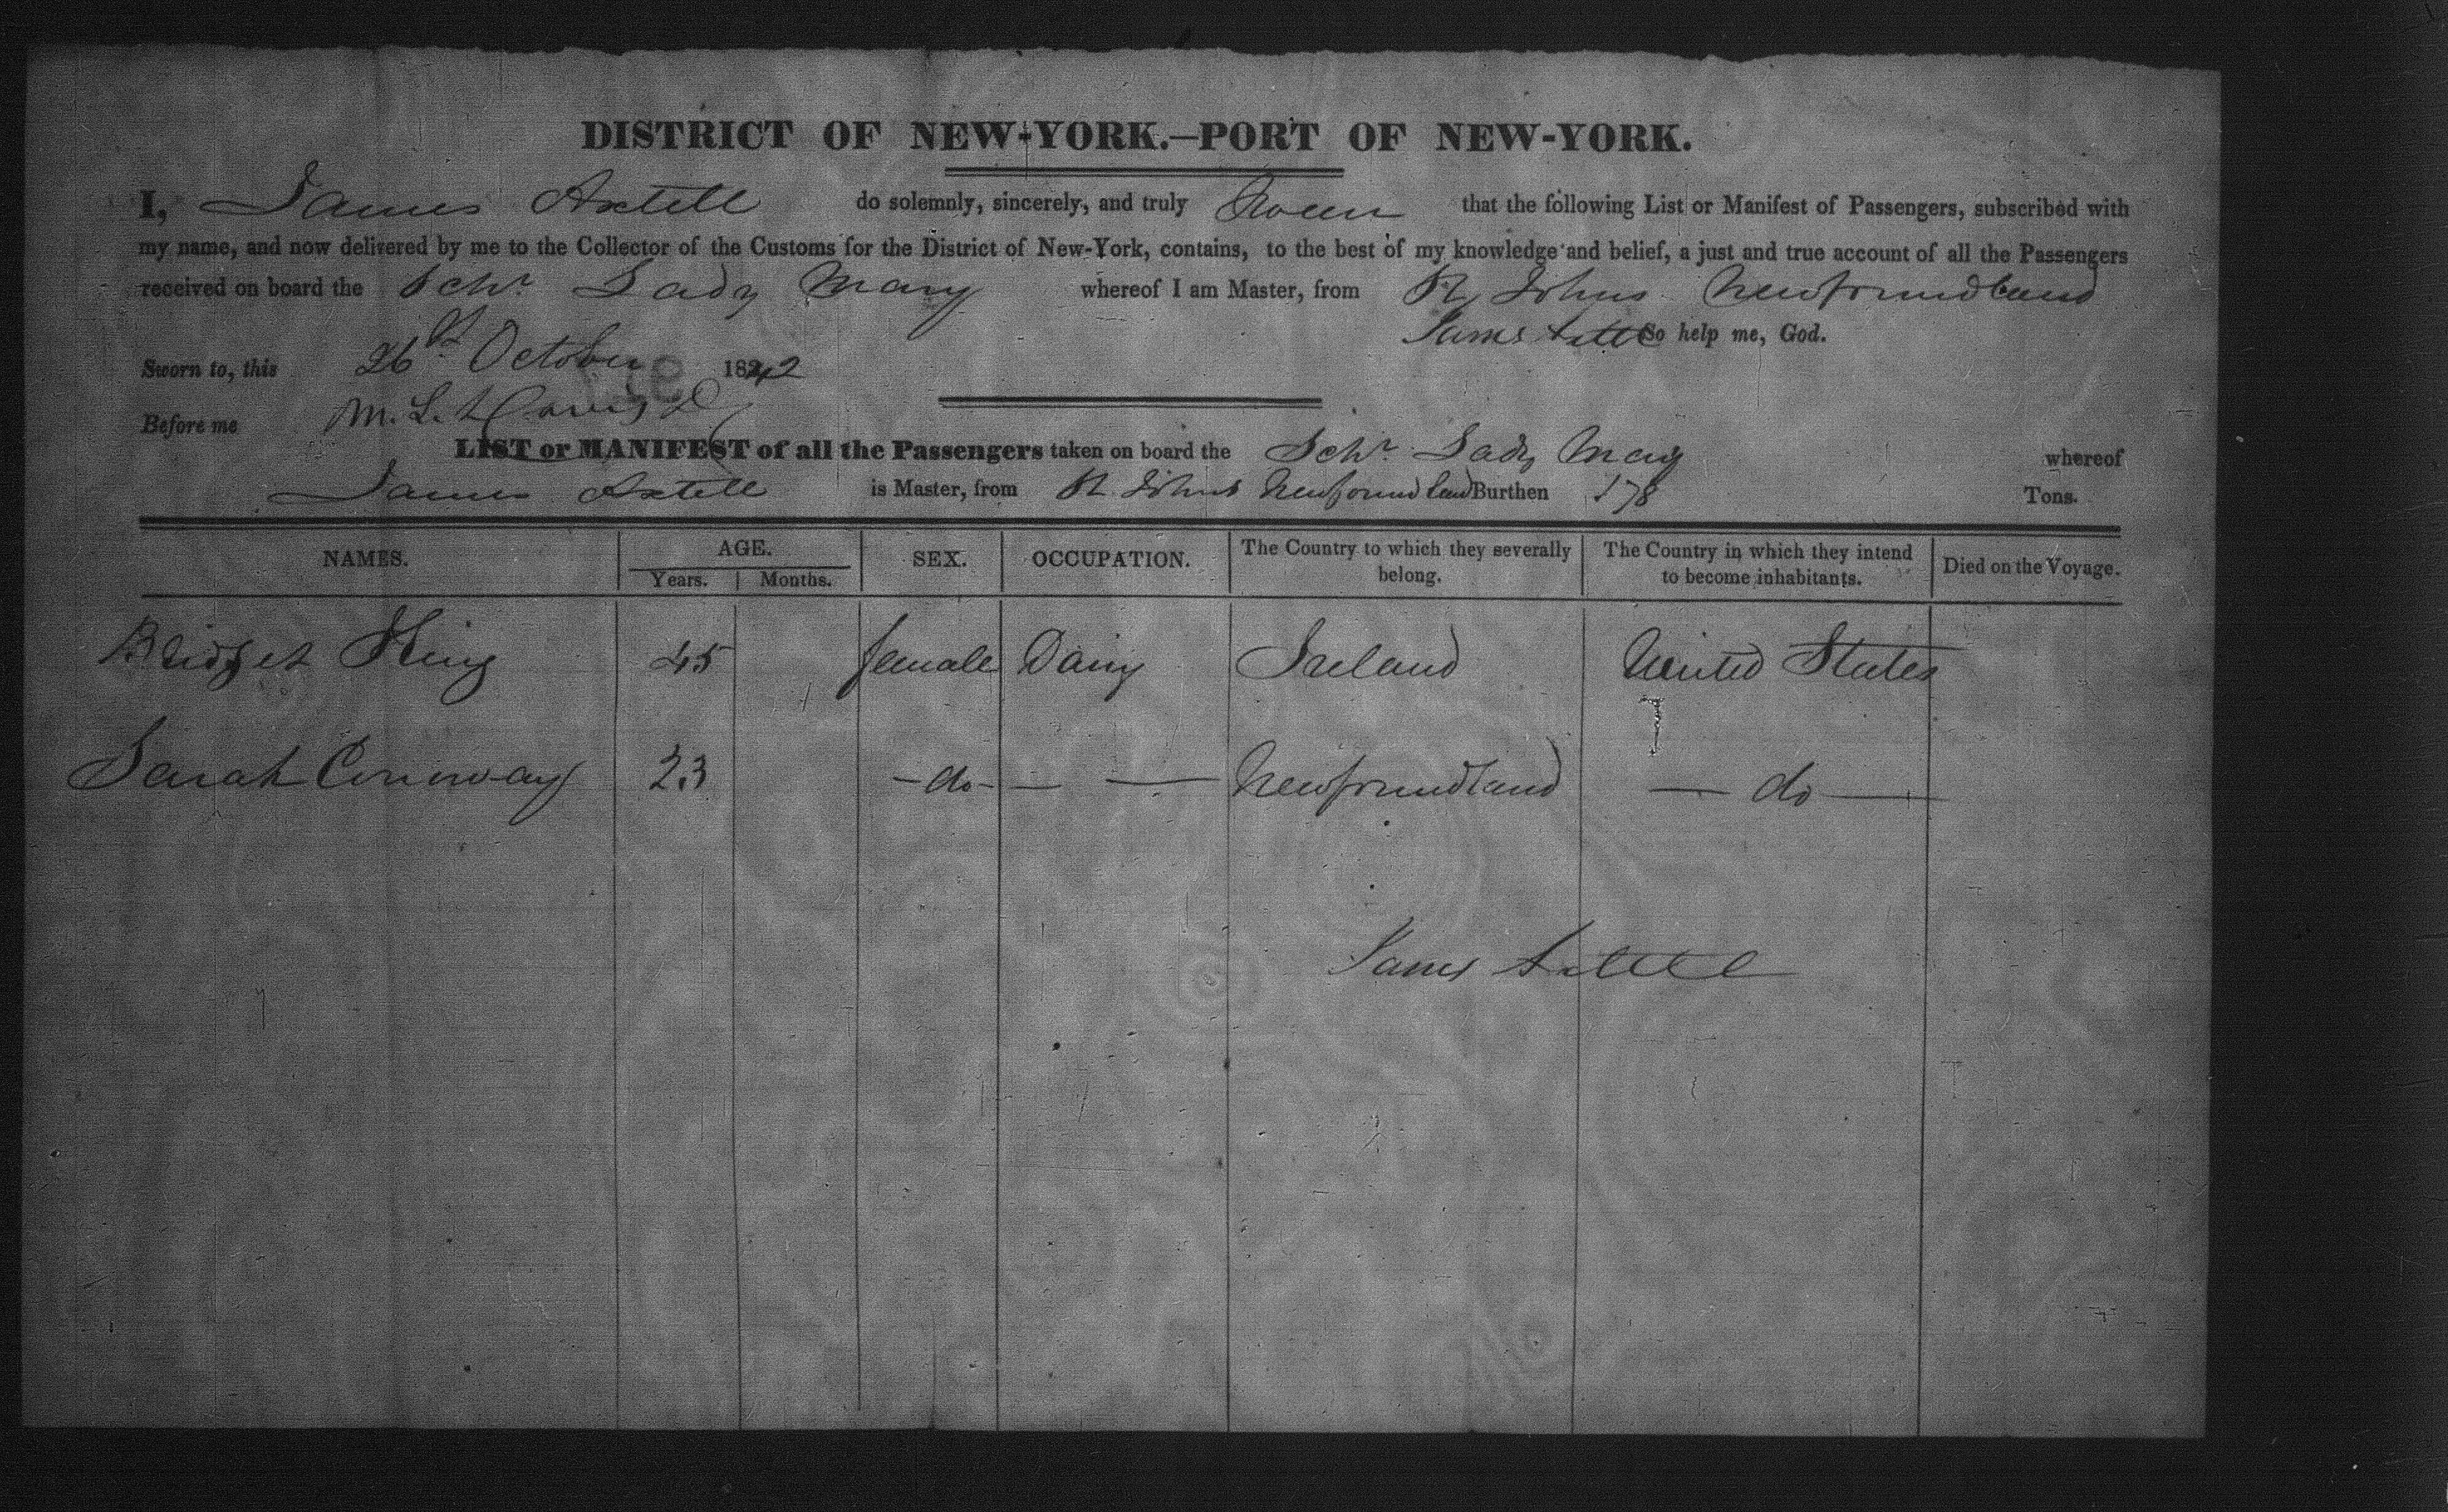 DISTRICT OF NEW-YORK.—PORT OF NEW-YORK.
I, James Axtell do solemnly, sincerely, and truly Swear that the following List or Manifest of Passengers, subscribed with
my name, and now delivered by me to the Collector of the Customs for the District of New-York, contains, to the best of my knowledge and belief, a just and true account of all the Passengers
received on board the Schr Lady Mary whereof I am Master, from St Johns Newfoundland
James Axtell So help me, God.
Sworn to, this 26 October 1842
Before me M. L. Davis
LIST or MANIFEST of all the Passengers taken on board the Schr Lady Mary whereof
James Axtell is Master, from St Johns Newfoundland Burthen 178 Tons.
NAMES. AGE. SEX. OCCUPATION. The Country to which they severally belong. The Country in which they intend to become inhabitants. Died on the Voyage.
Years. Months.
Bridget King 45 female Dairy Ireland United States
Sarah Conway 23 — do — — — Newfoundland — do —
James Axtell